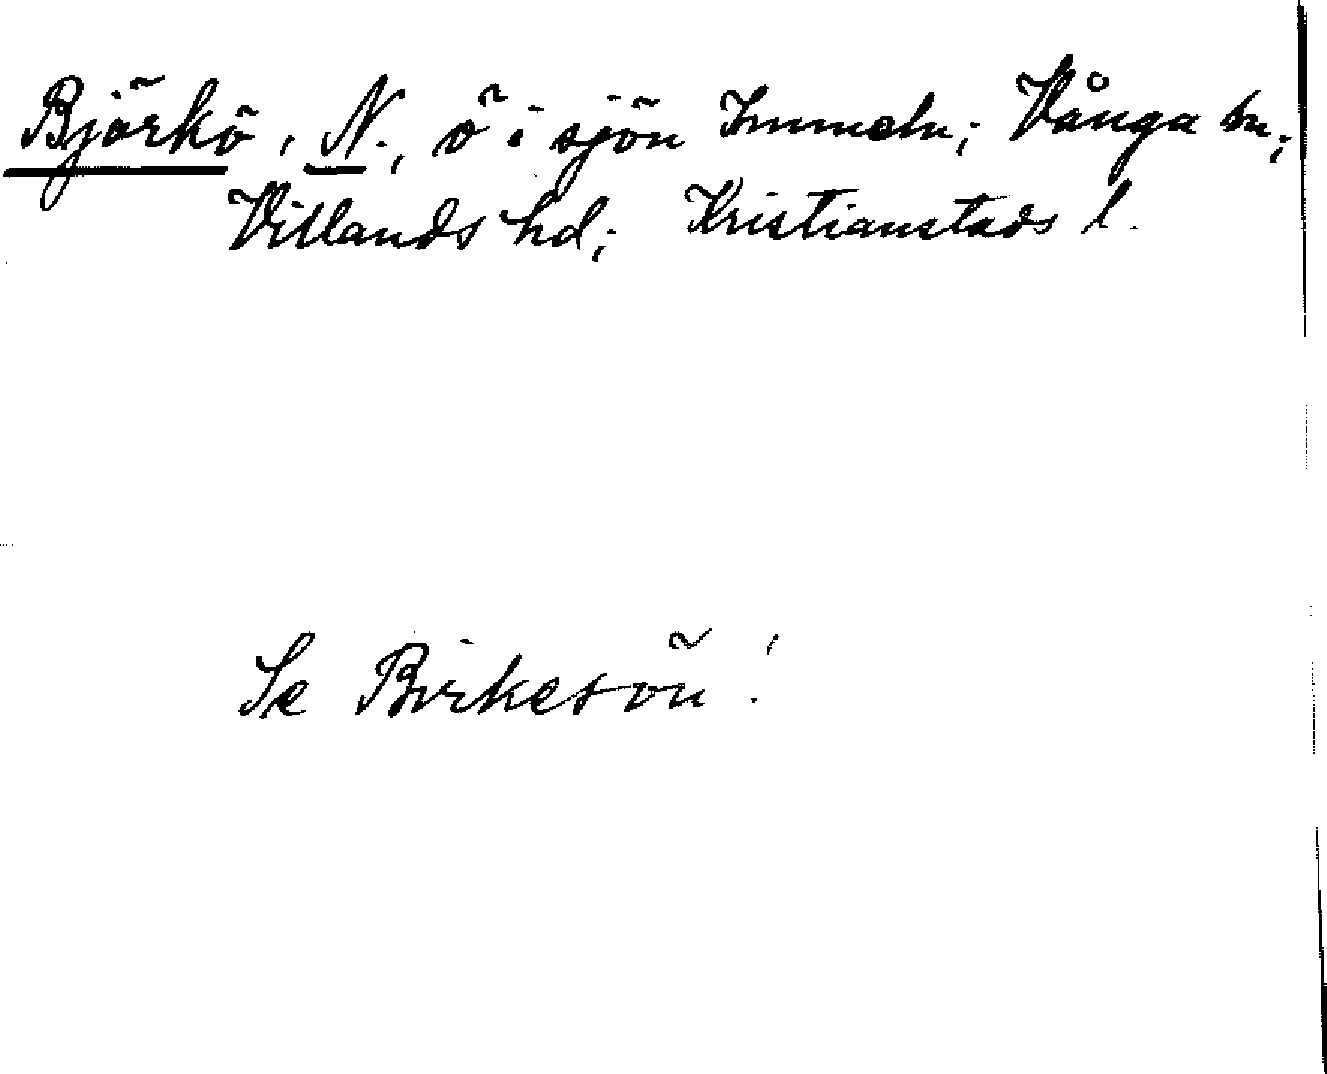 Björkö, N., ö i sjön Immeln; Vånga sn;
Villands hd; Kristianstads l.
Se Birkesön!